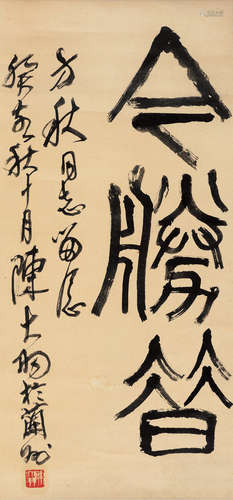 今勝昔
方秋同志留念
癸亥秋十月陳大羽於蘭州